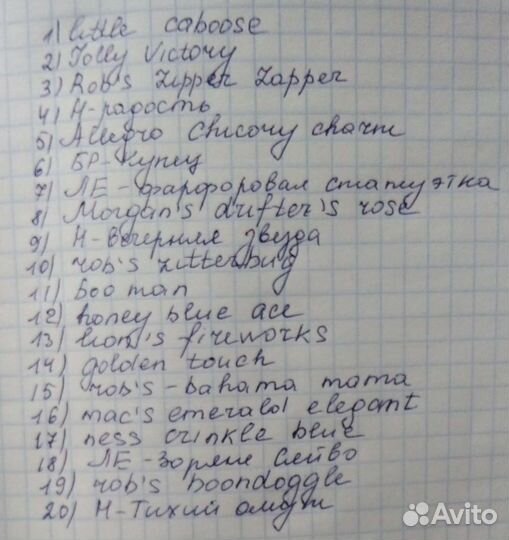 1) little caboose
2) Jolly Victory
3) Rob's Zipper Zapper
4) Н-радость
5) Allegro Chicory charm
6) БР-Купец
7) ЛЕ-фарфоровая статуэтка
8) Morgan's drifter's rose
9) Н-Вечерняя звезда
10) rob's zitterbug
11) boo man
12) honey blue ace
13) lion's fireworks
14) golden touch
15) rob's-bahama mama
16) mac's emerald elegant
17) ness crinkle blue
18) ЛЕ-Зоряне Сяйво
19) rob's boondoggle
20) Н-Тихий омут
Avito